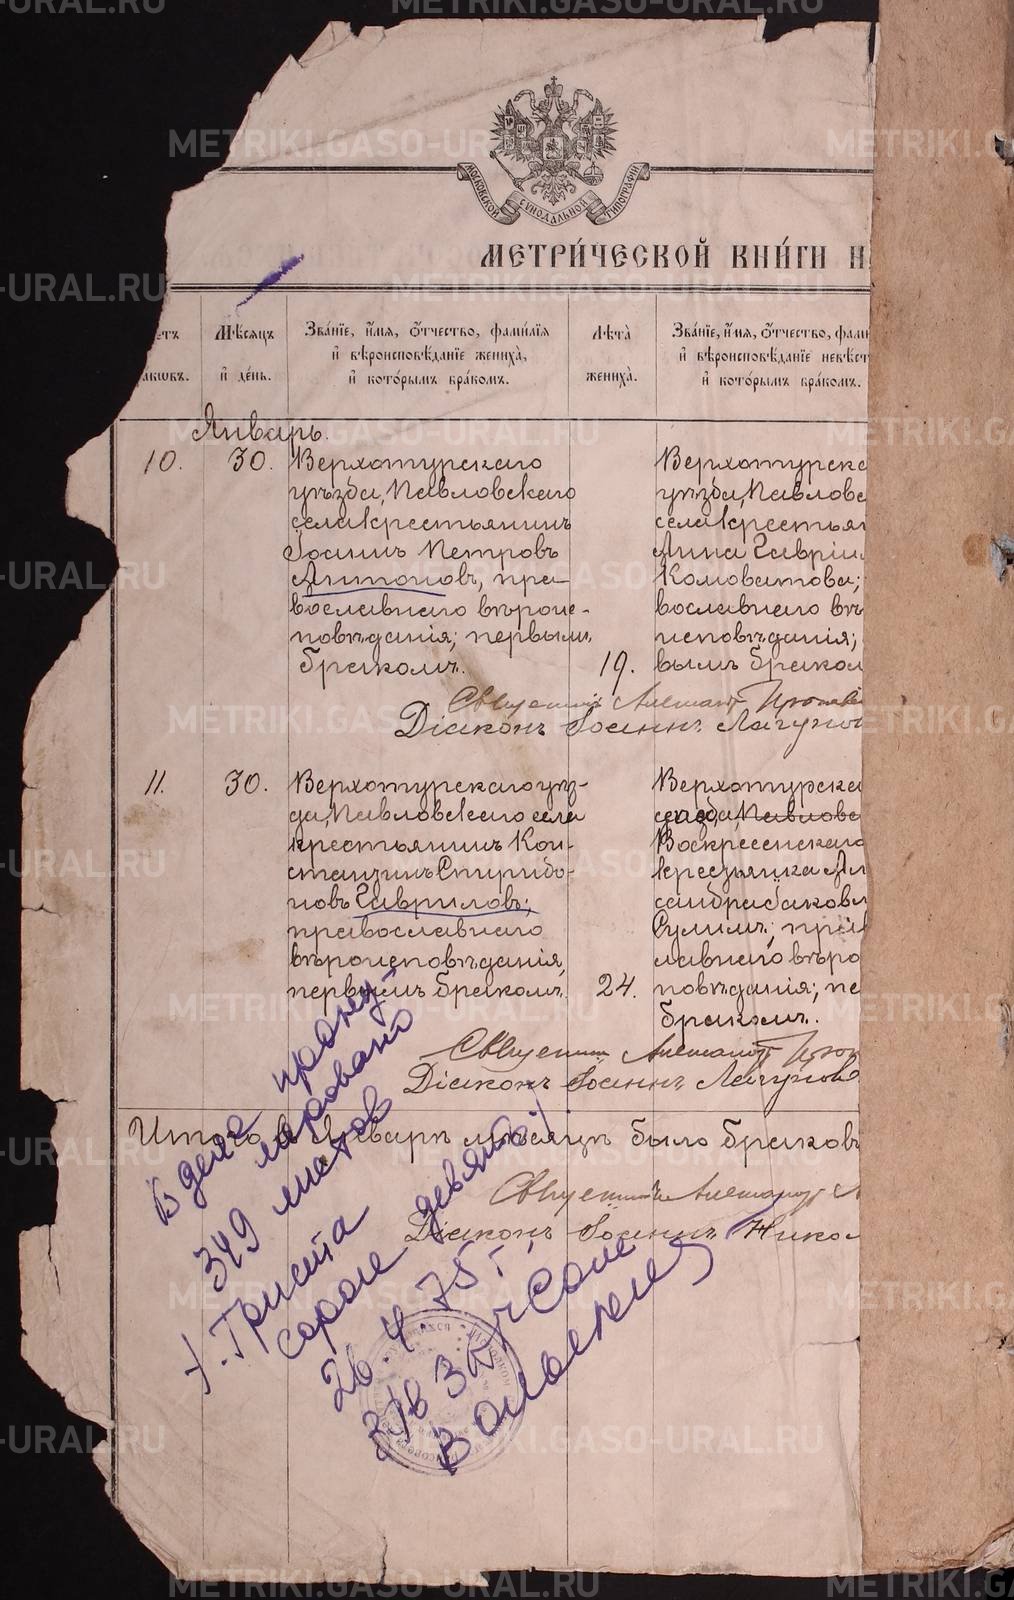 МОСКОВСКОЙ СѴНОДАЛЬНОЙ ТИПОГРАФІИ
МЕТРИ́ЧЕСКОЙ КНИ́ГИ Н
етъ
аковъ.
Мѣсѧцъ
и҆ де́нь.
Зва́нїе, и҆́мѧ, ѻ҆́тчество, фами́лїѧ
и҆ вѣроисповѣ́данїе жениха̀,
и҆ кото́рымъ бра́комъ.
Лѣта̀
жениха̀.
Зва́нїе, и҆́мѧ, ѻ҆́тчество, фами
и҆ вѣроисповѣ́данїе невѣст
и҆ кото́рымъ бра́комъ.
Январь.
10.
30.
Верхотурскаго
уѣзда, Павловскаго
села крестьянинъ
Іоаннъ Петровъ
Антоновъ, пра-
вославнаго вѣроис-
повѣданія; первымъ
бракомъ.
19.
Верхотурска
уѣзда, Павловс
села крестья
Анна Гаврііл
Коноватова;
вославнаго вѣ
исповѣданія;
вымъ бракол
Діаконъ Іоаннъ Лагуно
11.
30.
Верхотурскаго уѣз-
да, Павловскаго села
крестьянинъ Кон-
стантинъ Спиридо-
новъ Гавриловъ;
православнаго
вѣроисповѣданія,
первымъ бракомъ.
24.
Верхотурска
уѣзда, Павловс
Воскресенскаго
крестьянка Ал
сандра Іаковл
Сулимъ; прав
лавнаго вѣро
повѣданія; пе
бракомъ.
Діаконъ Іоаннъ Лагунова
Итого въ Январѣ мѣсяцѣ было браковъ
Діаконъ Іоаннъ Никол
В деле прону-
меровано
349 листов
Триста
сорок девять)
26. 4. 75 г.